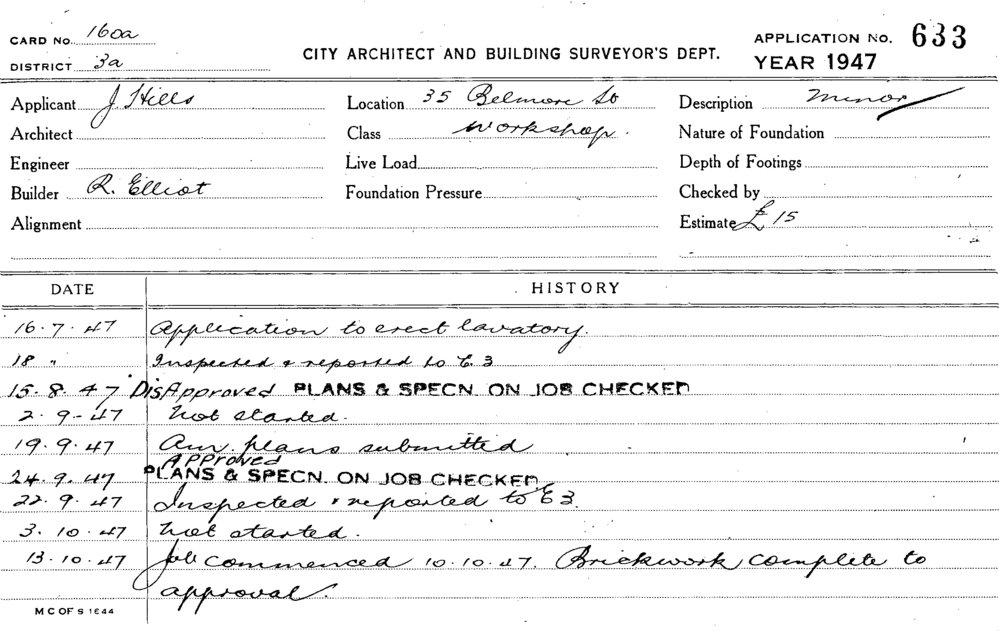 CARD No. 160a
DISTRICT 3a
CITY ARCHITECT AND BUILDING SURVEYOR'S DEPT.
APPLICATION No. 633
YEAR 1947
Applicant J Hills Location 35 Belmore St Description minor
Architect Class workshop. Nature of Foundation
Engineer Live Load Depth of Footings
Builder R. Elliot Foundation Pressure Checked by
Alignment Estimate £15
DATE HISTORY
16.7.47 Application to erect lavatory.
18 " Inspected & reported to E.3
15.8.47 DisApproved PLANS & SPECN. ON JOB CHECKED
2.9-47 Not started.
19.9.47 Am. plans submitted
Approved
24.9.47 PLANS & SPECN. ON JOB CHECKED
22.9.47 Inspected & reported to E3.
3.10.47 Not started.
13.10.47 Job commenced 10.10.47. Brickwork complete to
approval.
M C OF S 1644